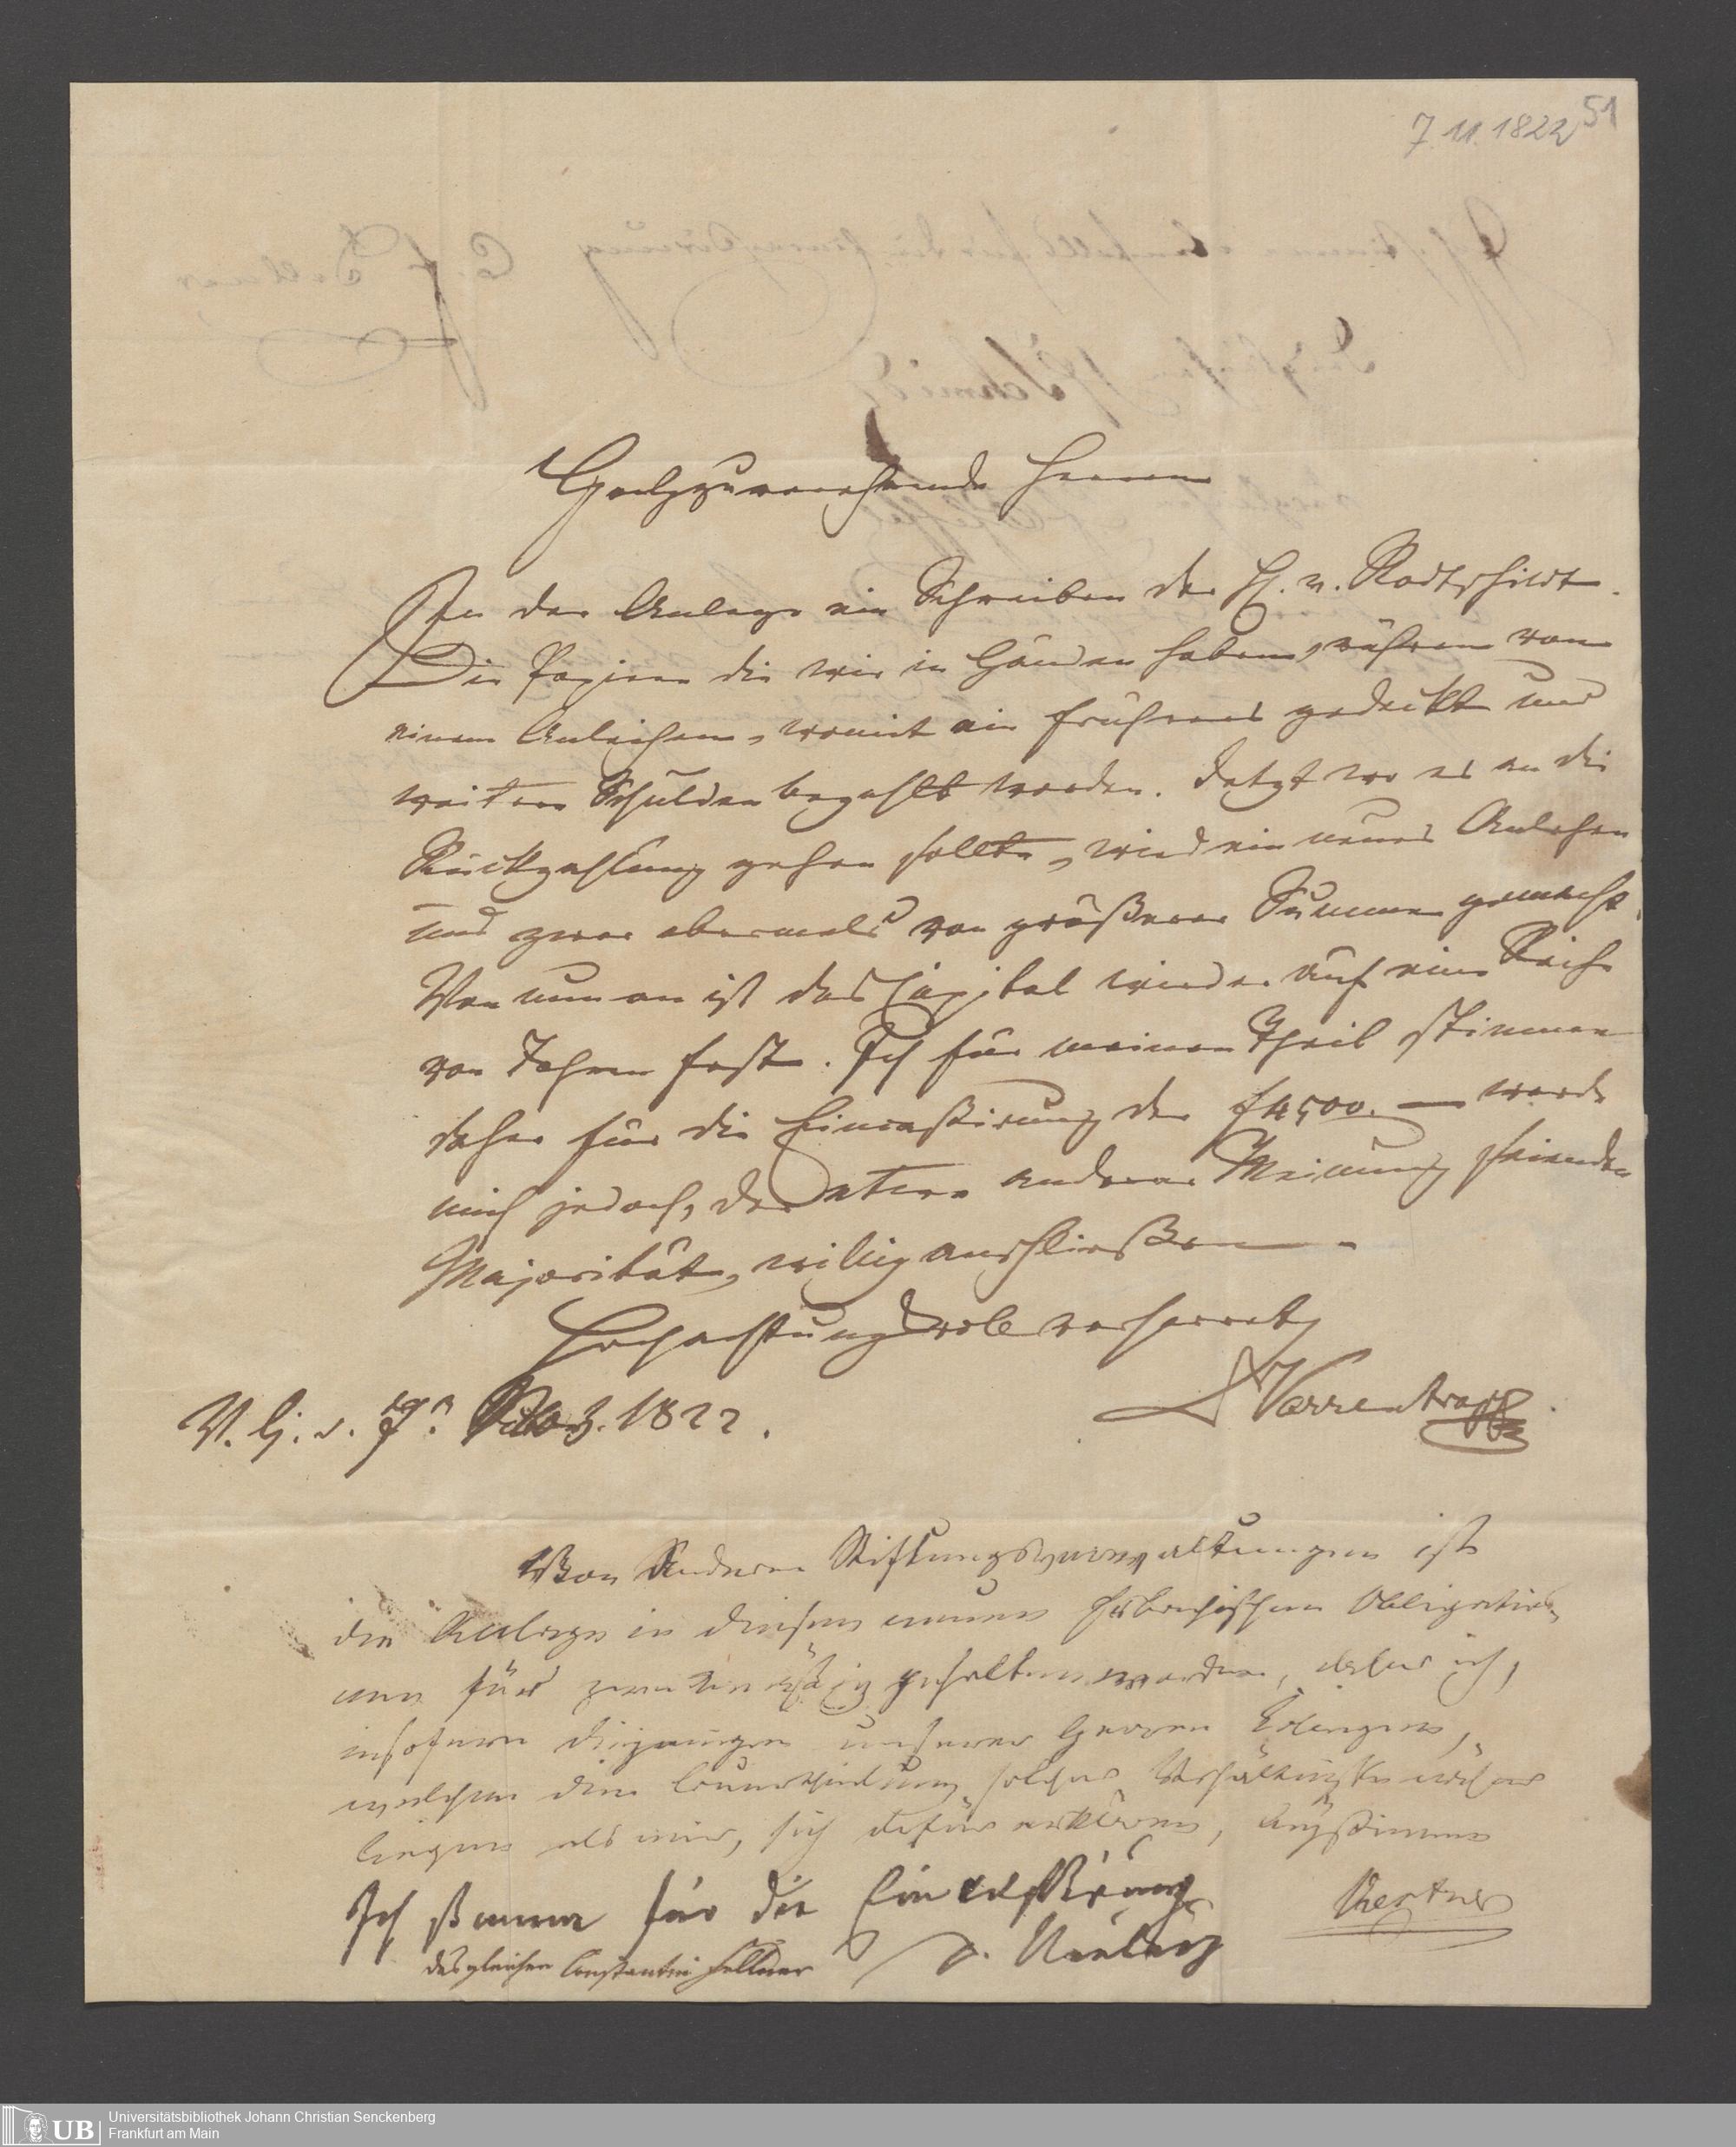 7 11. 1822 51
Hochzuverehrende Herren
In der Anlage ein Schreiben der H. v. Rodtschildt.
Die Papiere die wir in Händen haben, rühren von
einem Anleihen, womit ein früheres gedeckt und
weitere Schulden bezahlt worden. Jetzt wo es an die
Rückzahlung gehen sollte, wird ein neues Anlehen
und zwar abermals von größerer Summe gemacht.
Von nun an ist das Capital wieder auf eine Reihe
von Jahren fest. Ich für meinen Theil stimme
daher für die Eincassirung der f 4500. — werde
mich jedoch, der etwa anderer Meinung seienden
Majorität, willig anschließen.
Hochachtungsvoll verharret
Varrentrapp
V. H. d. 7n Nov. 1822.
Von Anderen Stiftungsverwaltungen ist
die Anlage in diesen neuen Obligatio-
nen für zweckmäßig gehalten worden, daher ich,
insofern diejenigen unserer Herren Collegen,
welchen die Beurtheilung solcher Verhältnisse näher
liegen als mir, sich dafür erklären, beystimme
Kestner
Ich stimme für die Eincassirung
desgleichen Constantin Fellner